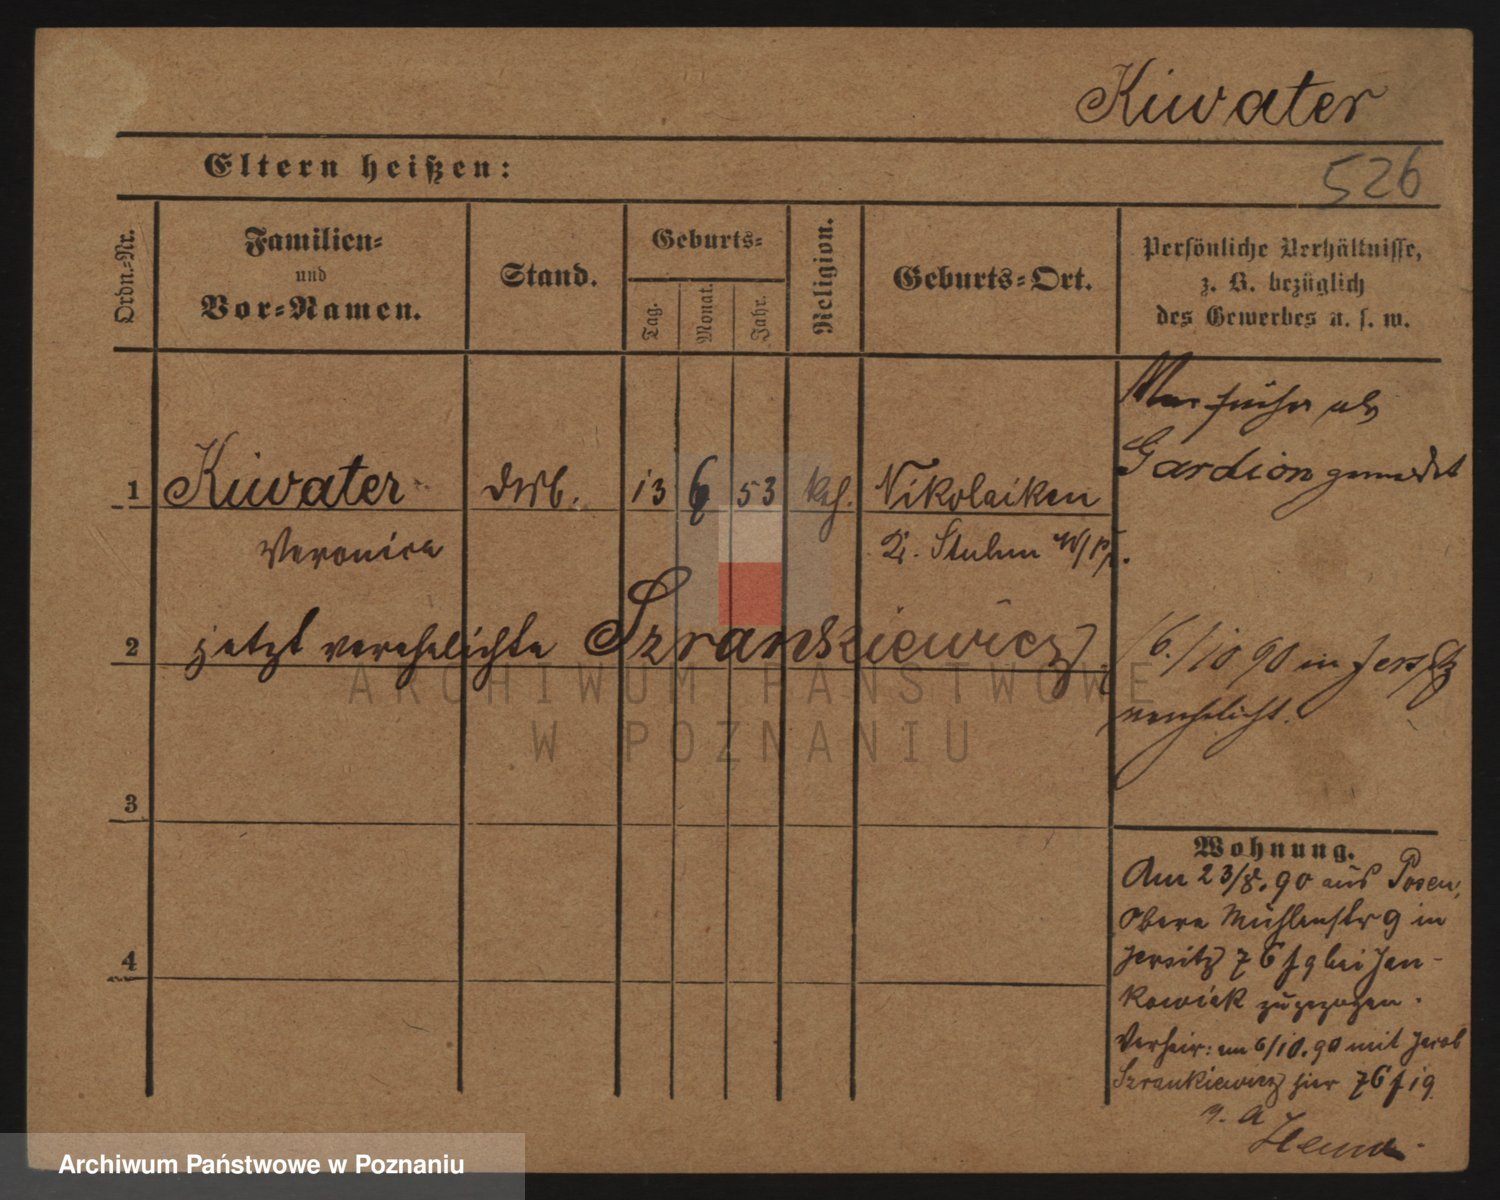 Kiwater
526
Eltern heißen:
Ordn.-Nr.
Familien-
und
Vor-Namen.
Stand.
Geburts-
Tag.
Monat.
Jahr.
Religion.
Geburts-Ort.
Persönliche Verhältnisse,
z. B. bezüglich
des Gewerbes u. s. w.
War früher als
Gardion gemeldet
1 Kiwater 13 6 53 kath. Nikolaiken
Veronica Kr. Stuhm W/Pr.
2 jetzt verehelichte Szrankiewicz
6./10 90 in Jersitz
verehelicht.
3
4
Wohnung.
Am 23/8. 90 aus Posen,
Obere Mühlenstr 9 in
Jersitz 76 bei Jan-
kowiak zugezogen.
Verheir: am 6/10. 90 mit Jacob
Szrankiewicz hier 76
ARCHIWUM PAŃSTWOWE
W POZNANIU
Archiwum Państwowe w Poznaniu